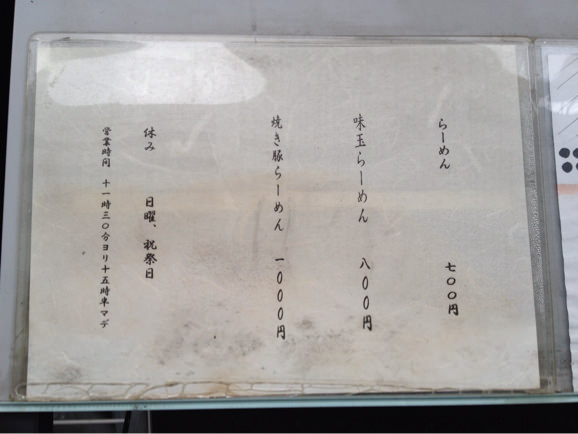 らーめん 七〇〇円
味玉らーめん 八〇〇円
焼き豚らーめん 一〇〇〇円
休み 日曜、祝祭日
営業時间 十一時三〇分ヨリ十五時半マデ